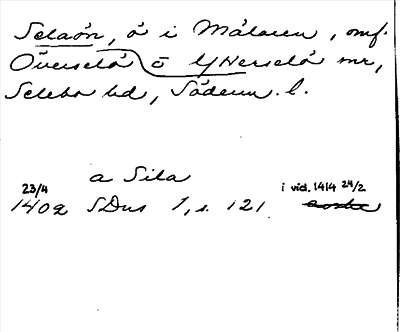 Selaön, ö i Mälaren, omf.
Överselö o Ytterselö snr,
Selebo hd, Söderm. l.
a Sila
23/4 1402 SDns 1, s. 121 i vid. 1414 24/2